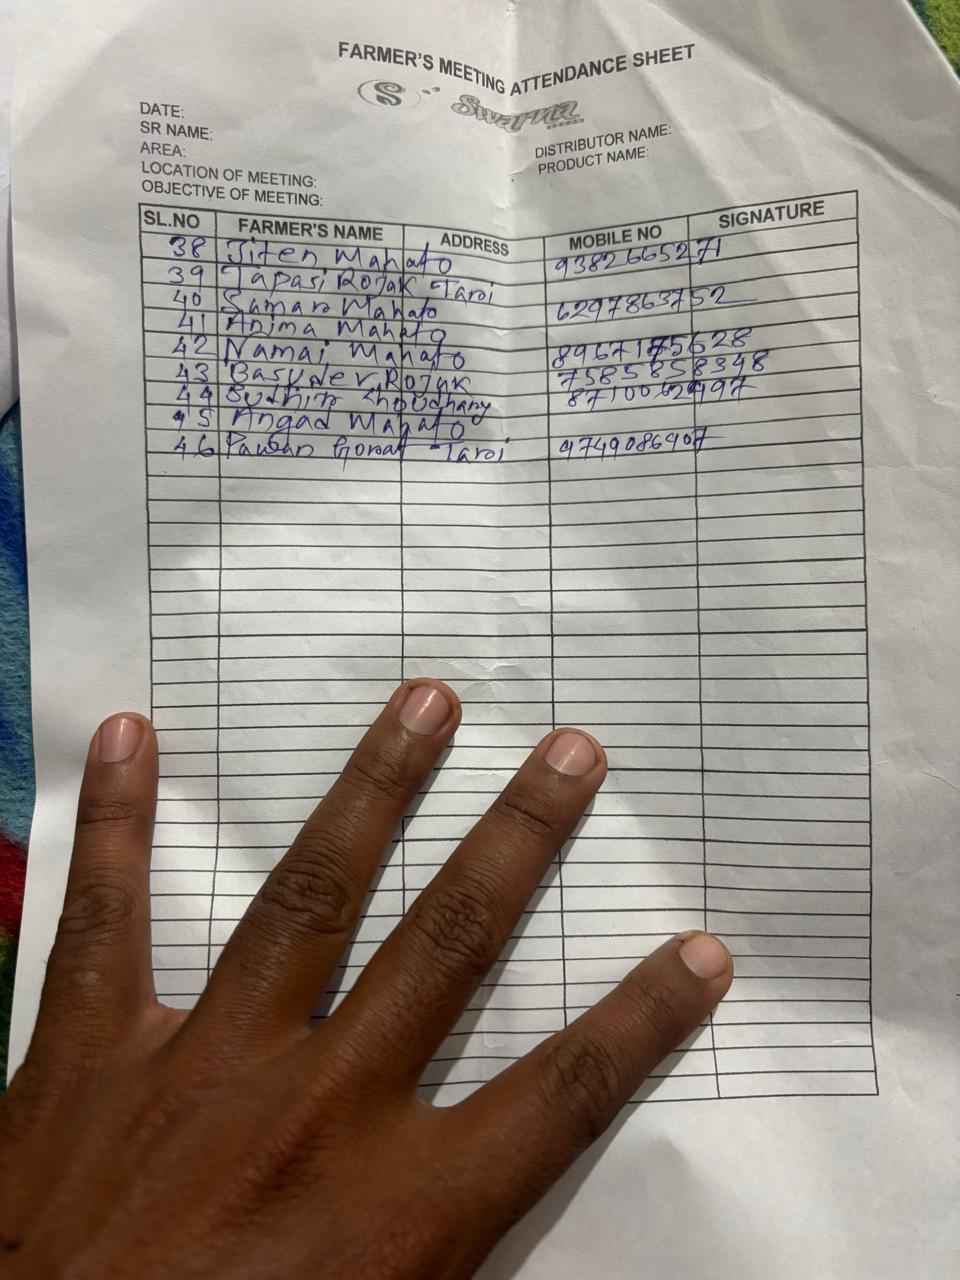 FARMER'S MEETING ATTENDANCE SHEET
S Swarna
DATE:
SR NAME:
AREA:
LOCATION OF MEETING:
OBJECTIVE OF MEETING:
DISTRIBUTOR NAME:
PRODUCT NAME:
SL.NO FARMER'S NAME ADDRESS MOBILE NO SIGNATURE
38 Jiten Mahato 9382665271
39 Tapasi Rojak Taroi
40 Saman Mahato 6297863752
41 Anima Mahato
42 Namai Mahato
43 Basudev Rojak 7585858348
44 Choudhary
45 Angad Mahato
46 Pawan Gorai Taroi 9749086907